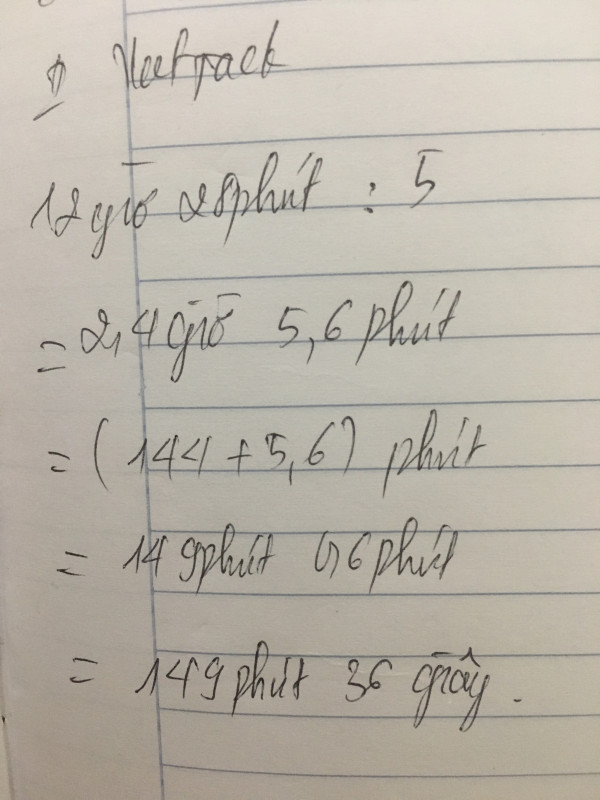 12 giờ 28 phút : 5
= 2,4 giờ 5,6 phút
= (144 + 5,6) phút
= 149 phút 0,6 phút
= 149 phút 36 giây.